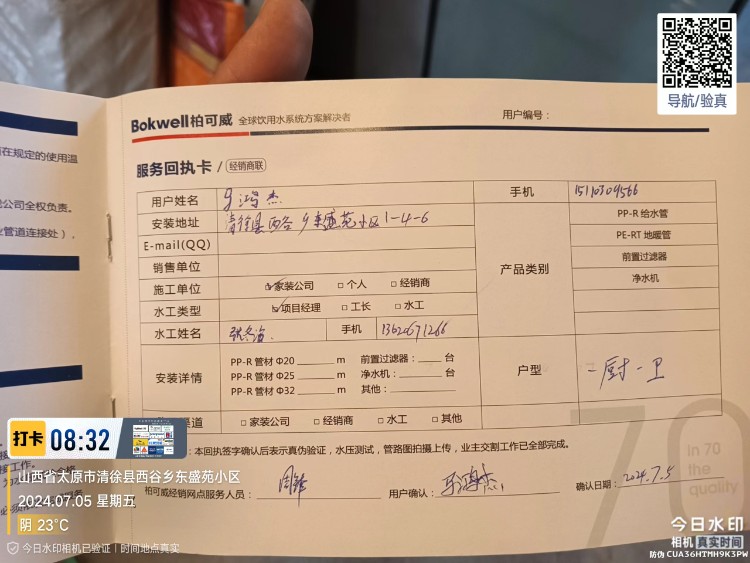 导航/验真
Bokwell柏可威 全球饮用水系统方案解决者
用户编号：
服务回执卡 / 经销商联
在规定的使用温
公司全权负责。
管道连接处），
用户姓名 马鸿杰 手机 15110309566
安装地址 清徐县西谷乡东盛苑小区1-4-6
E-mail(QQ)
销售单位
施工单位 ☑家装公司 □个人 □经销商
水工类型 ☑项目经理 □工长 □水工
水工姓名 手机 13620671266
产品类别
PP-R 给水管
PE-RT 地暖管
前置过滤器
净水机
安装详情
PP-R 管材 Φ20 ______ m 前置过滤器：____ 台
PP-R 管材 Φ25 ______ m 净水机：______ 台
PP-R 管材 Φ32 ______ m 其他：______
户型 一厨一卫
渠道 □家装公司 □经销商 □水工 □其他
：本回执签字确认后表示真伪验证，水压测试，管路图拍摄上传，业主交割工作已全部完成。
柏可威经销网点服务人员：
用户确认：马鸿杰
确认日期：2024.7.5
70
in 70
the
quality
打卡 08:32
山西省太原市清徐县西谷乡东盛苑小区
2024.07.05 星期五
阴 23°C
今日水印相机已验证 | 时间地点真实
今日水印
相机 真实时间
防伪 CUA36HTMH9K3PW